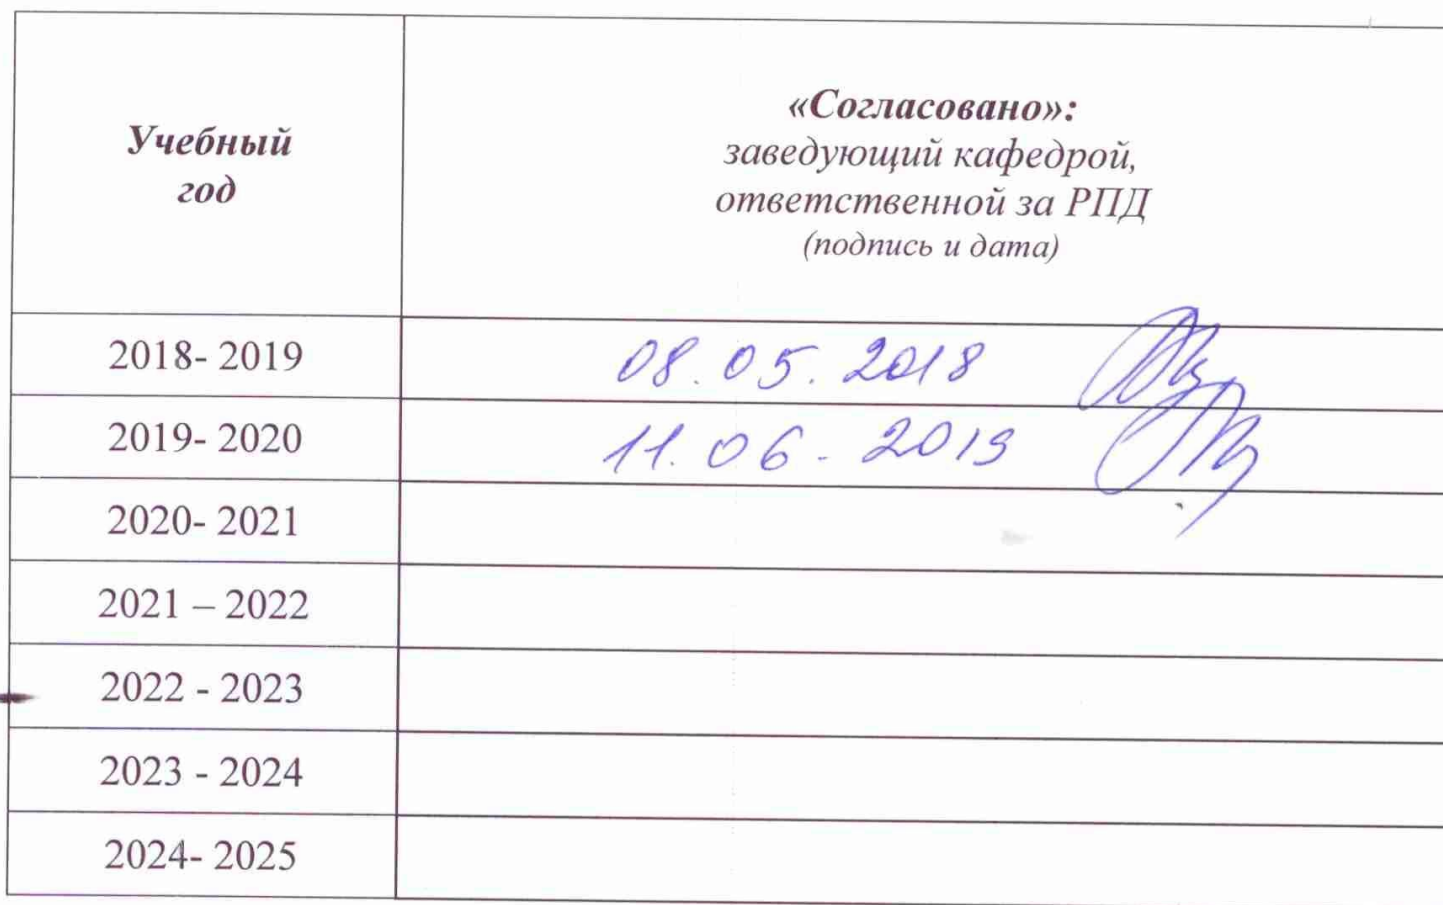 Учебный
год
«Согласовано»:
заведующий кафедрой,
ответственной за РПД
(подпись и дата)
2018- 2019
08.05.2018
2019- 2020
11.06.2019
2020- 2021
2021 – 2022
2022 - 2023
2023 - 2024
2024- 2025